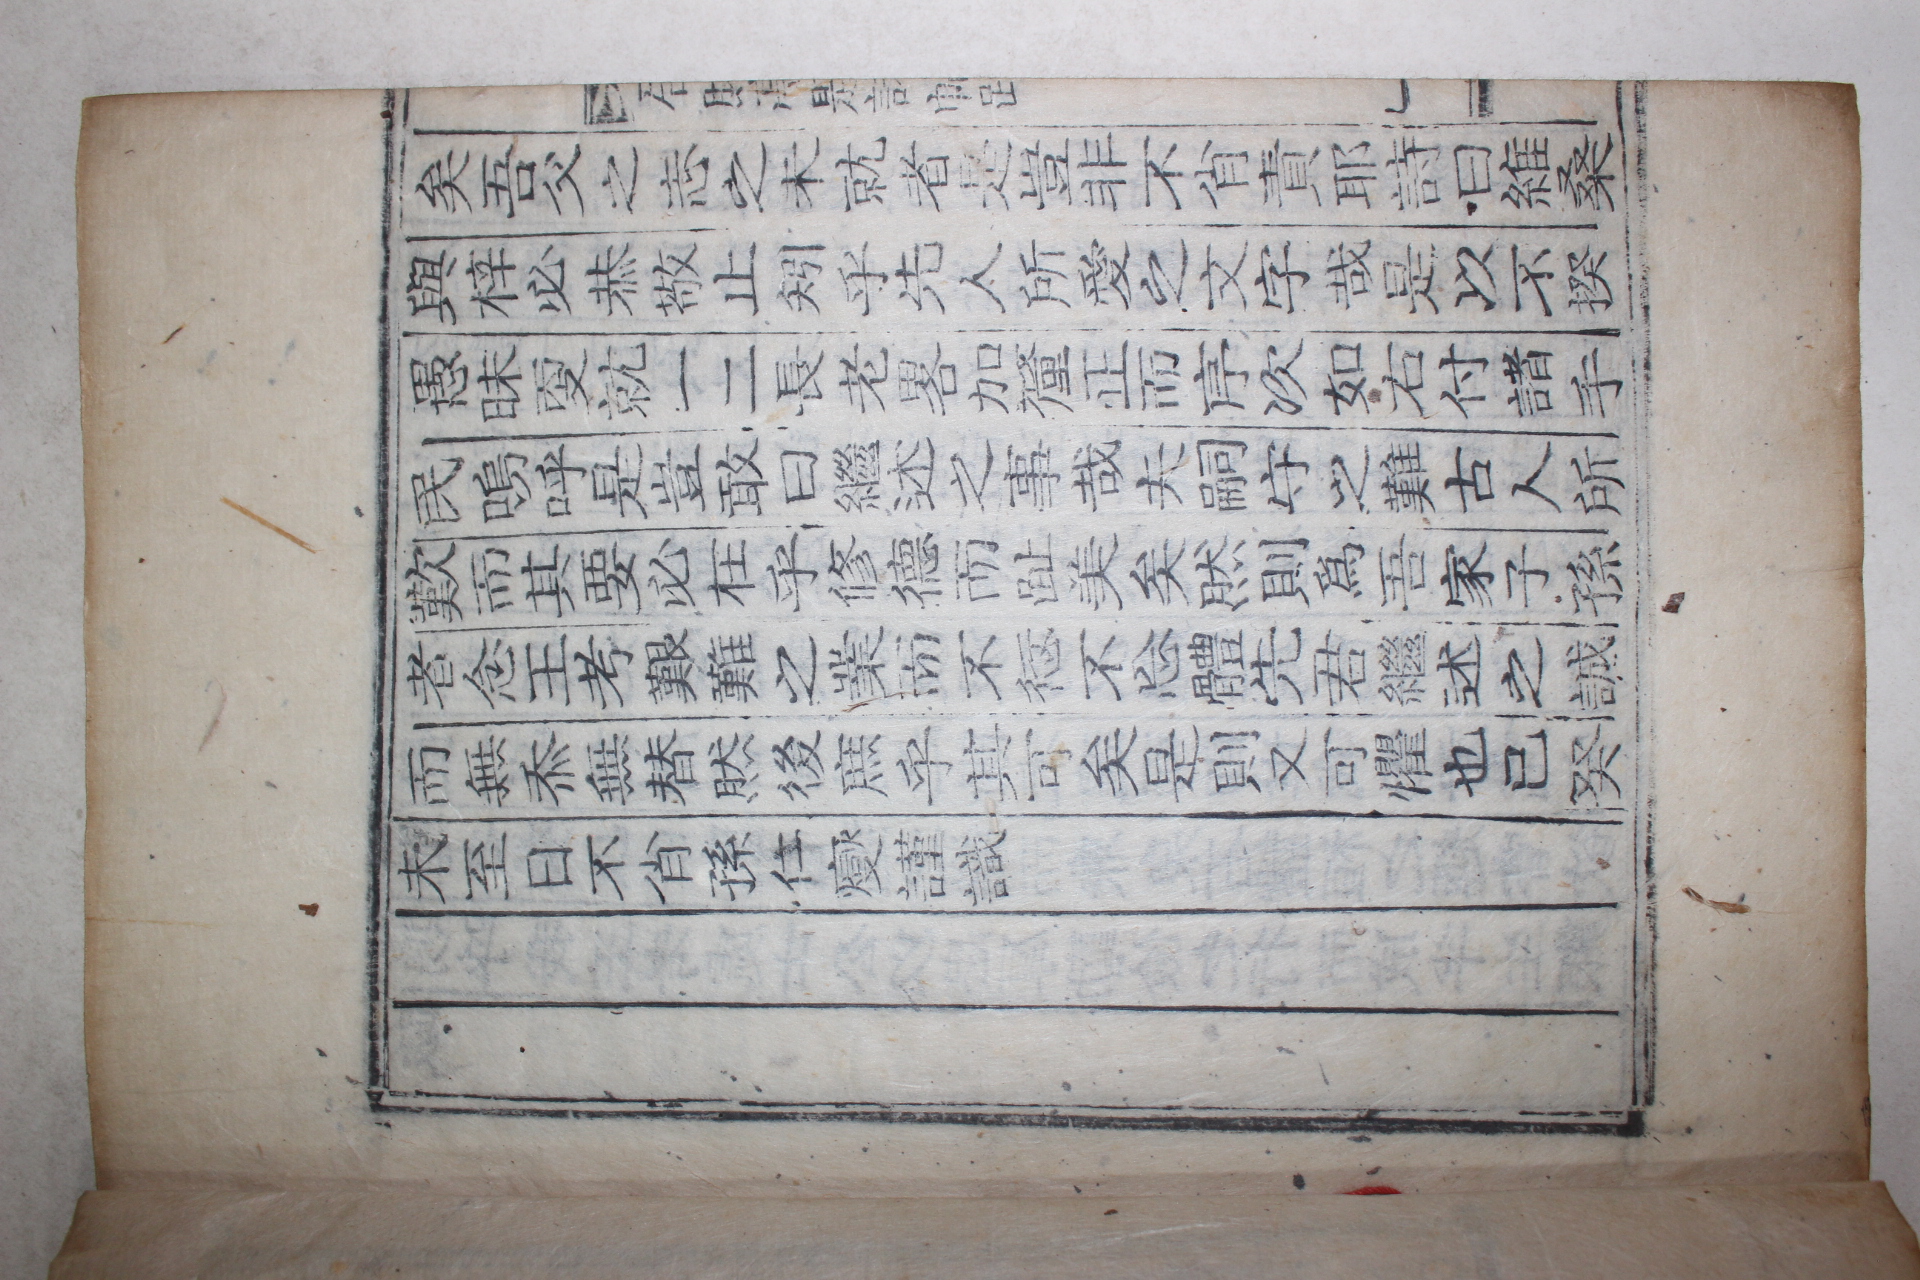 矣吾父之志之未就者是豈非不肖責耶詩曰維桑
與梓必恭敬止矧乎先人所愛之文字哉是以不揆
愚昧更就一二長老畧加釐正而序次如右付諸手
民嗚呼是豈敢曰繼述之事哉夫嗣守之難古人所
歎而其要必在乎修德而趾美矣然則爲吾家子孫
者念王考艱難之業而不愆不忘體先君繼述之誠
而無忝無替然後庶乎其可矣是則又可懼也已癸
未至日不肖孫仕燮謹識